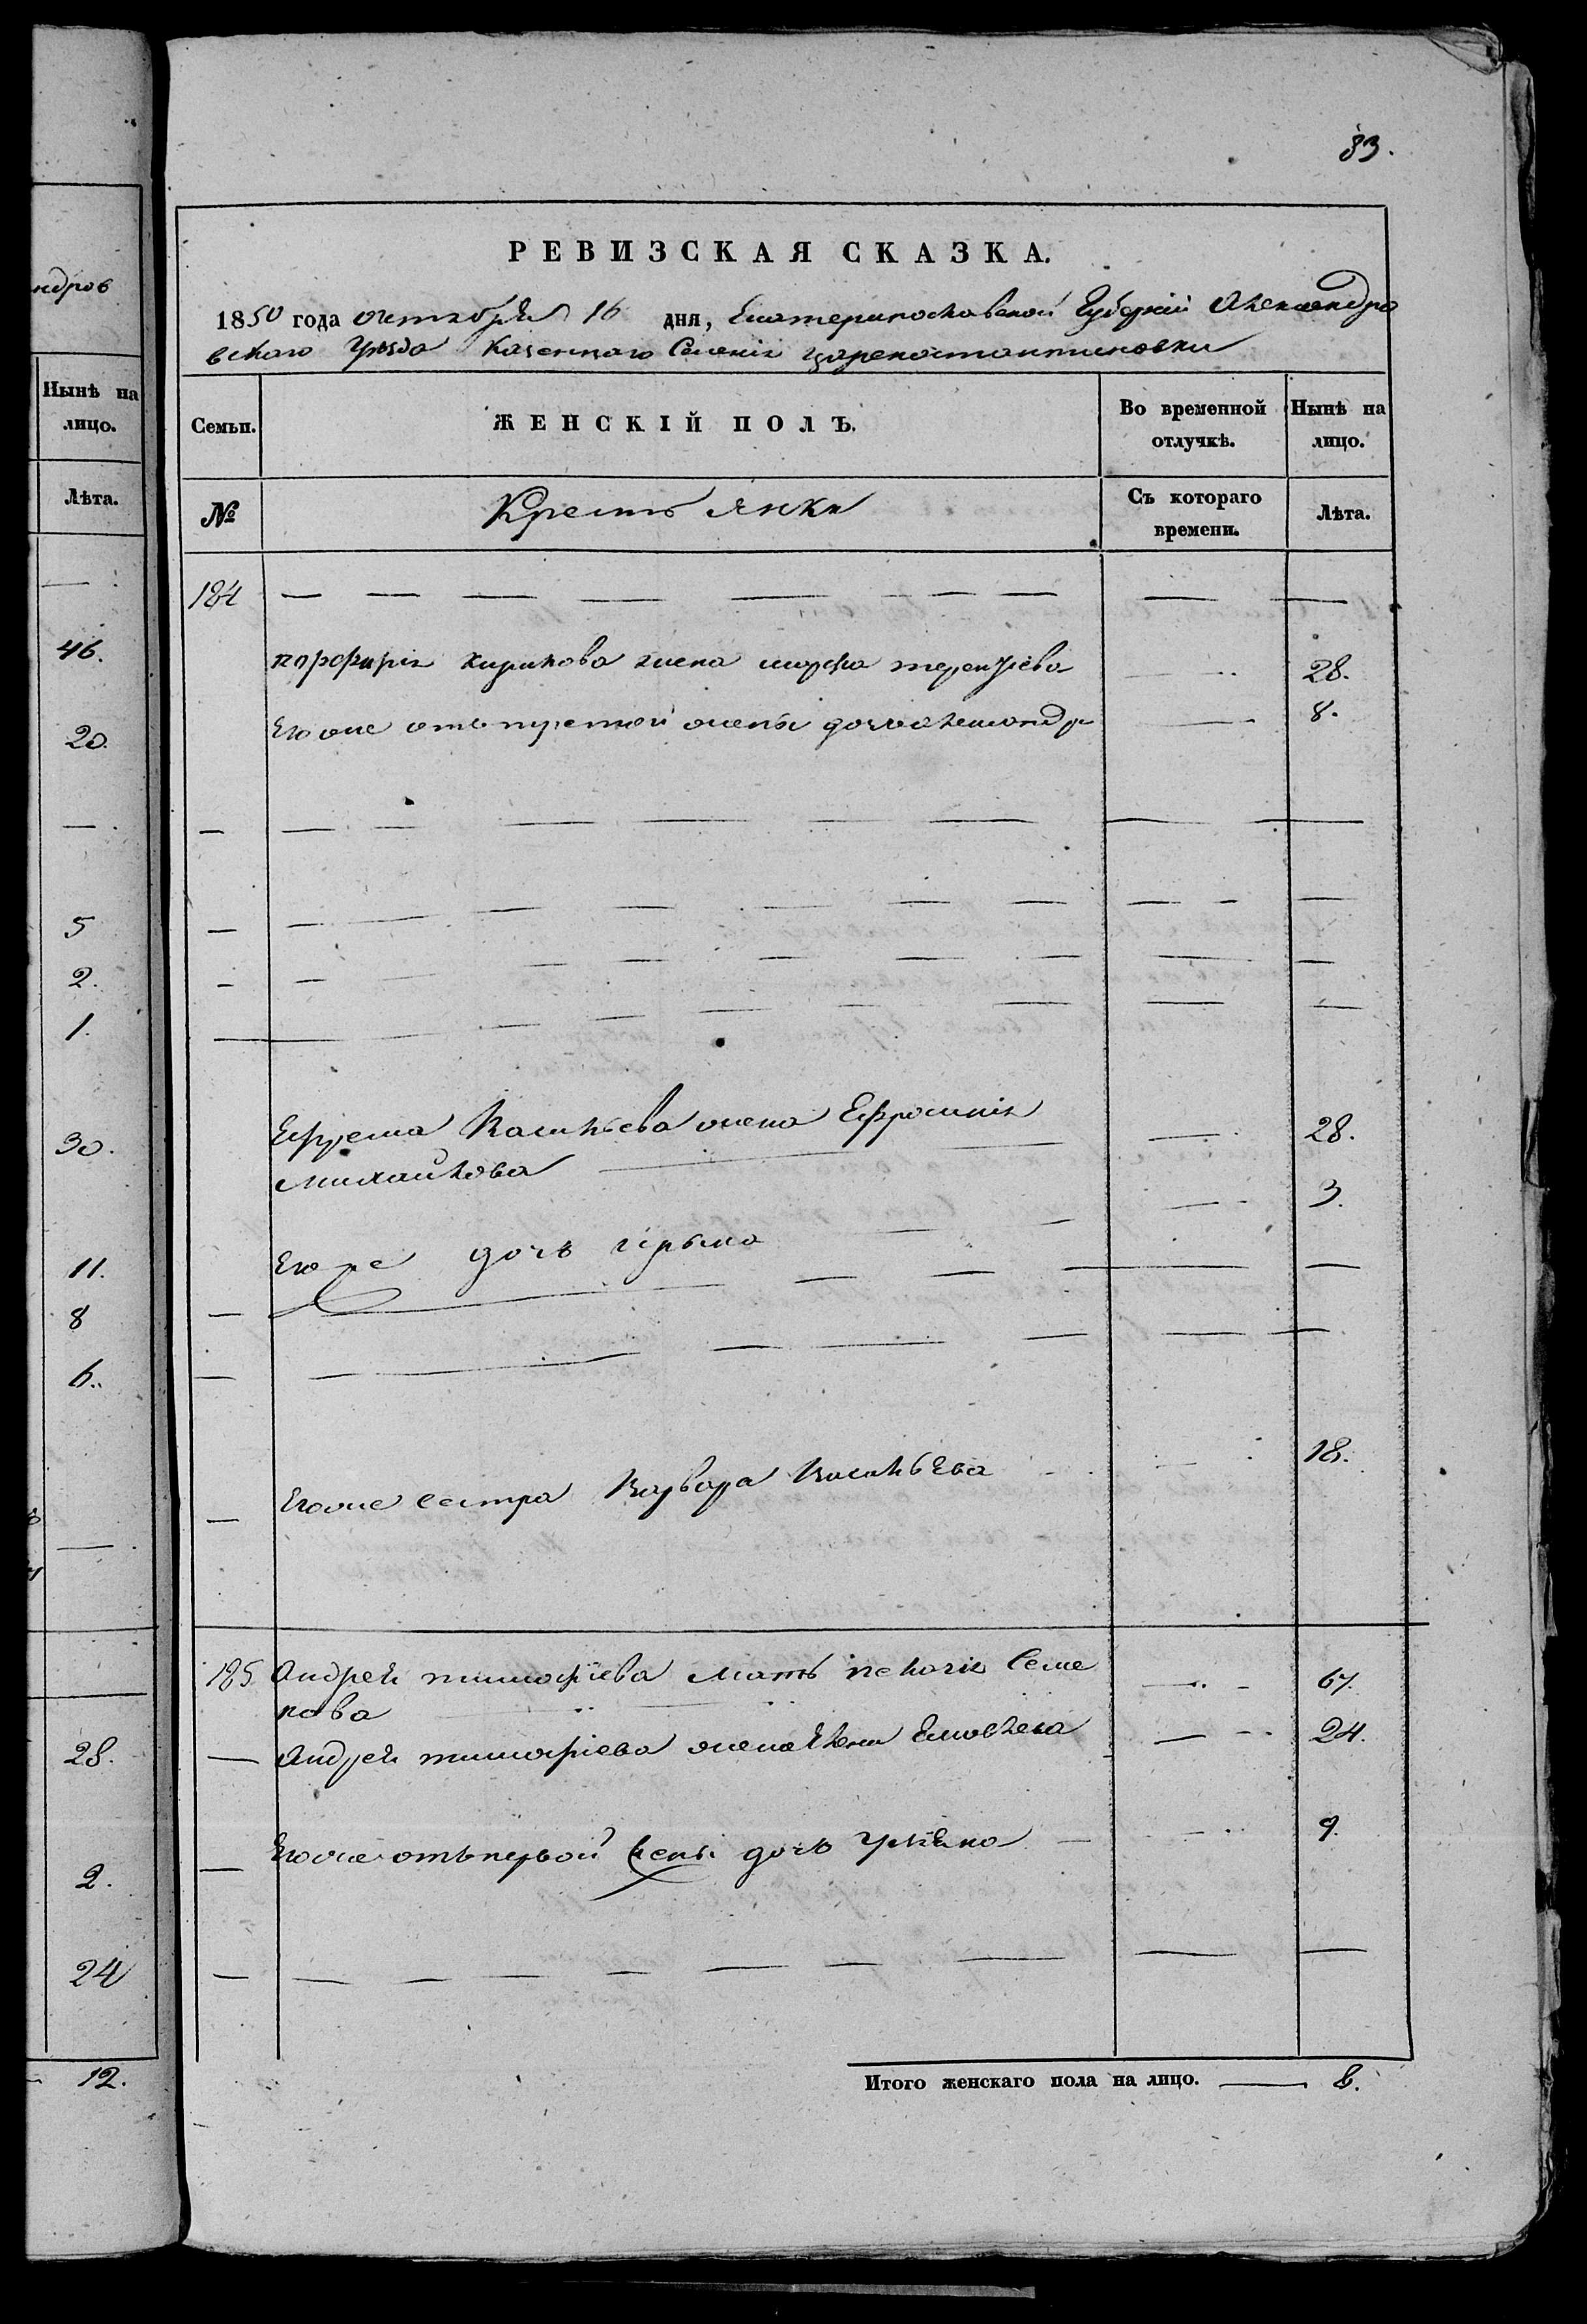 ндров
Нынѣ на
лицо.
Лѣта.
46.
20.
5
2.
1.
30.
11.
8
6.
28.
2.
24
12.
83.
РЕВИЗСКАЯ СКАЗКА.
1850 года октября 16 дня, Екатеринославской Губерніи Александро
вскаго Уѣзда Казеннаго Селенія Цареконстантиновки
Семьи. ЖЕНСКІЙ ПОЛЪ. Во временной отлучкѣ. Нынѣ на лицо.
№ Крестьянки Съ котораго времени. Лѣта.
184 — — — — — — — —
порфирія кирилова жена марфа терентіева — 28.
Его же отъ первой жены дочь александра — 8.
Ефрема Васильева жена Ефросинія — 28.
Михайлова
Его же дочь ирына — 3.
Его же сестра Варвара Васильева — 18.
185 Андрея тимофіева мать пелагія Семе — 67.
нова
— Андрея тимофіева жена Елена — 24.
— Его же отъ первой жены дочь — 9.
Итого женскаго пола на лицо. — 8.